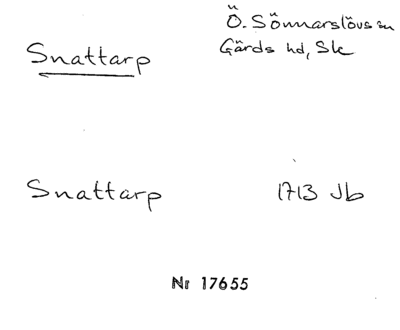 Snattarp
Ö. Sönnarslövs sn
Gärds hd, Sk
Snattarp 1713 Jb
Nr 17655